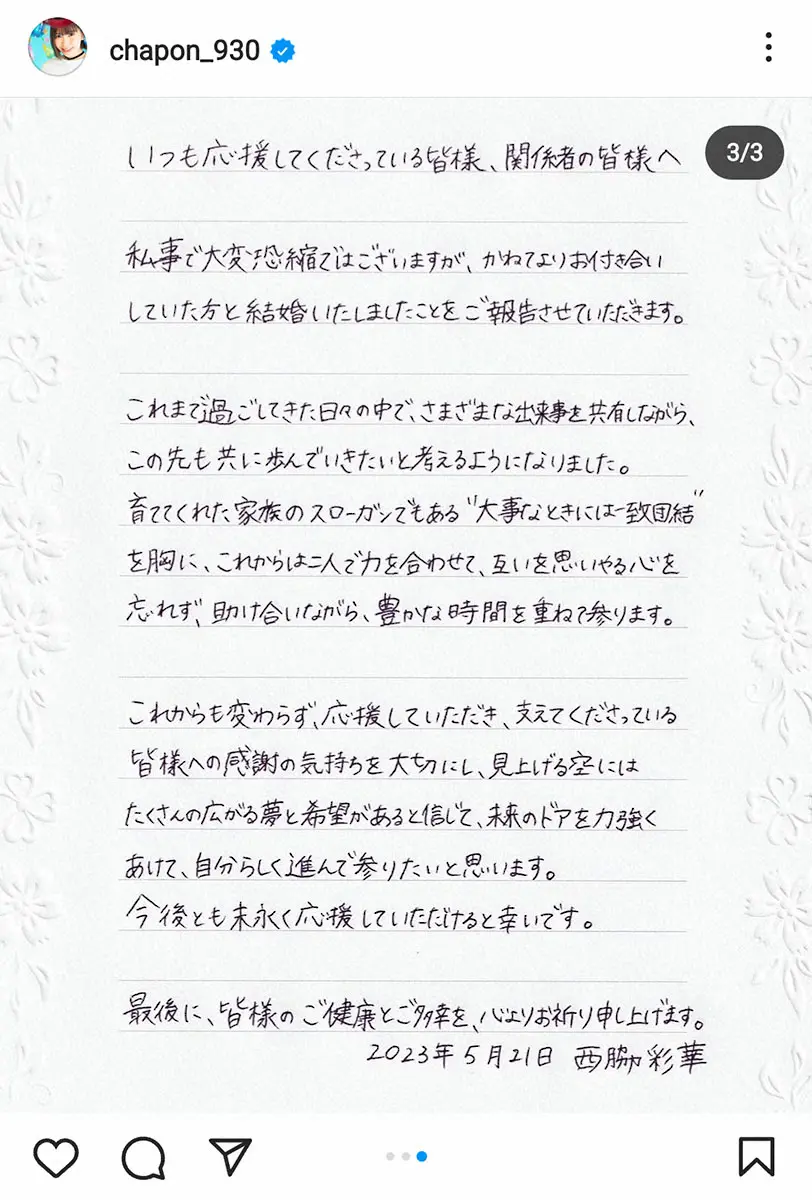 chapon_930
3/3
いつも応援してくださっている皆様、関係者の皆様へ
私事で大変恐縮ではございますが、かねてよりお付き合い
していた方と結婚いたしましたことをご報告させていただきます。
これまで過ごしてきた日々の中で、さまざまな出来事を共有しながら、
この先も共に歩んでいきたいと考えるようになりました。
育ててくれた家族のスローガンでもある"大事なときには一致団結"
を胸に、これからは二人で力を合わせて、互いを思いやる心を
忘れず、助け合いながら、豊かな時間を重ねて参ります。
これからも変わらず、応援していただき、支えてくださっている
皆様への感謝の気持ちを大切にし、見上げる空には
たくさんの広がる夢と希望があると信じて、未来のドアを力強く
あけて、自分らしく進んで参りたいと思います。
今後とも末永く応援していただけると幸いです。
最後に、皆様のご健康とご多幸を、心よりお祈り申し上げます。
2023年5月21日 西脇彩華